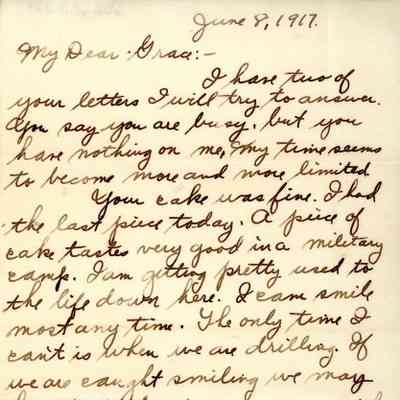 June 8, 1917.
My Dear Grace:-
I have two of
your letters I will try to answer.
You say you are busy, but you
have nothing on me, My time seems
to become more and more limited
Your cake was fine. I had
the last piece today. A piece of
cake tastes very good in a military
camp. I am getting pretty used to
the life down here. I can smile
most any time. The only time I
can't is when we are drilling. If
we are caught smiling we may